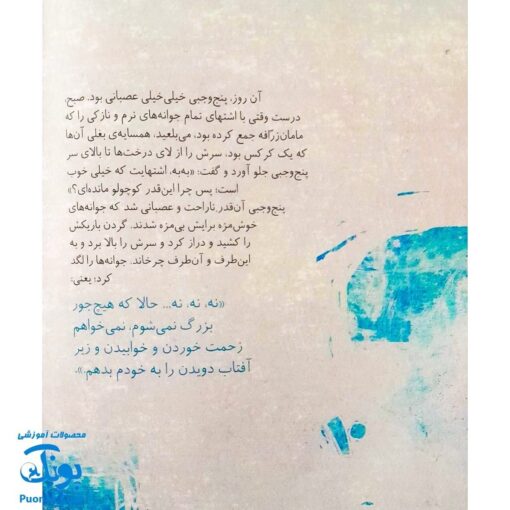 آن روز، پنج‌وجبی خیلی‌خیلی عصبانی بود. صبح،
درست وقتی با اشتهای تمام جوانه‌های نرم و نازکی را که
مامان‌زرافه جمع کرده بود، می‌بلعید، همسایه‌ی بغلی آن‌ها
که یک کرکس بود، سرش را از لای درخت‌ها تا بالای سر
پنج‌وجبی جلو آورد و گفت: «به‌به، اشتهایت که خیلی خوب
است؛ پس چرا این‌قدر کوچولو مانده‌ای؟»
پنج‌وجبی آن‌قدر ناراحت و عصبانی شد که جوانه‌های
خوش‌مزه برایش بی‌مزه شدند. گردن باریکش
را کشید و دراز کرد و سرش را بالا برد و به
این‌طرف و آن‌طرف چرخاند. جوانه‌ها را لگد
کرد؛ یعنی:
«نه، نه، نه... حالا که هیچ‌جور
بزرگ نمی‌شوم، نمی‌خواهم
زحمت خوردن و خوابیدن و زیر
آفتاب دویدن را به خودم بدهم.»
محصولات آموزشی
پونک